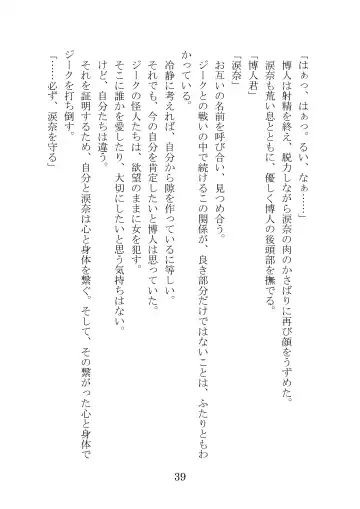 「はぁっ、はぁっ。るい、なぁ……」
博人は射精を終え、脱力しながら涙奈の肉のかさばりに再び顔をうずめた。
涙奈も荒い息とともに、優しく博人の後頭部を撫でる。
「博人君」
「涙奈」
お互いの名前を呼び合い、見つめ合う。
ジークとの戦いの中で続けるこの関係が、良き部分だけではないことは、ふたりともわ
かっている。
冷静に考えれば、自分から隙を作っているに等しい。
それでも、今の自分を肯定したいと博人は思っていた。
ジークの怪人たちは、欲望のままに女を犯す。
そこに誰かを愛したり、大切にしたいと思う気持ちはない。
けど、自分たちは違う。
それを証明するため、自分と涙奈は心と身体を繋ぐ。そして、その繋がった心と身体で
ジークを打ち倒す。
「……必ず、涙奈を守る」
39